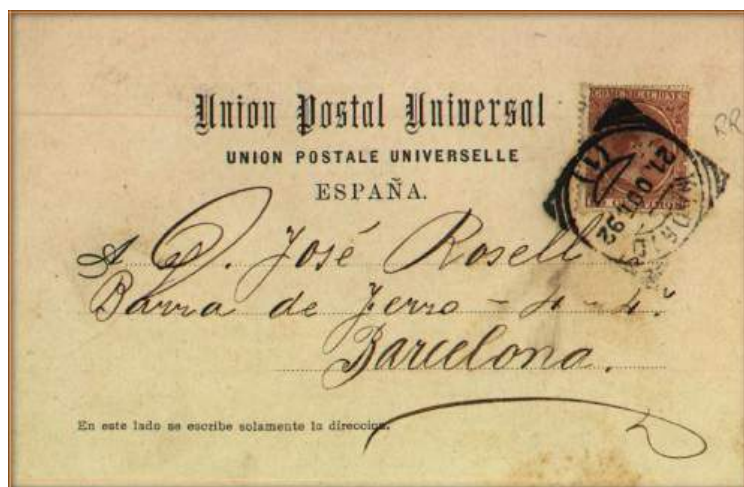 Union Postal Universal
UNION POSTALE UNIVERSELLE
ESPAÑA.
COMUNICACIONES
RR
A D. José Rosell
Barra de Ferro - 4 - 4º
Barcelona.
En este lado se escribe solamente la direccion.